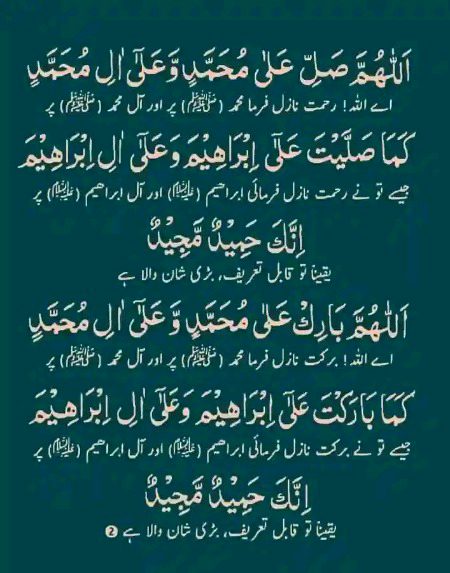 اَللّٰهُمَّ صَلِّ عَلٰى مُحَمَّدٍ وَّعَلٰٓى اٰلِ مُحَمَّدٍ
اے اللہ! رحمت نازل فرما محمد (ﷺ) پر اور آل محمد (ﷺ) پر
كَمَا صَلَّيْتَ عَلٰٓى اِبْرَاهِيْمَ وَعَلٰٓى اٰلِ اِبْرَاهِيْمَ
جیسے تو نے رحمت نازل فرمائی ابراھیم (علیہ السلام) اور آل ابراھیم (علیہ السلام) پر
اِنَّكَ حَمِيْدٌ مَّجِيْدٌ
یقیناً تو قابل تعریف، بڑی شان والا ہے
اَللّٰهُمَّ بَارِكْ عَلٰى مُحَمَّدٍ وَّ عَلٰٓى اٰلِ مُحَمَّدٍ
اے اللہ! برکت نازل فرما محمد (ﷺ) پر اور آل محمد (ﷺ) پر
كَمَا بَارَكْتَ عَلٰٓى اِبْرَاهِيْمَ وَعَلٰٓى اٰلِ اِبْرَاهِيْمَ
جیسے تو نے برکت نازل فرمائی ابراھیم (علیہ السلام) اور آل ابراھیم (علیہ السلام) پر
اِنَّكَ حَمِيْدٌ مَّجِيْدٌ
یقیناً تو قابل تعریف، بڑی شان والا ہے ❷